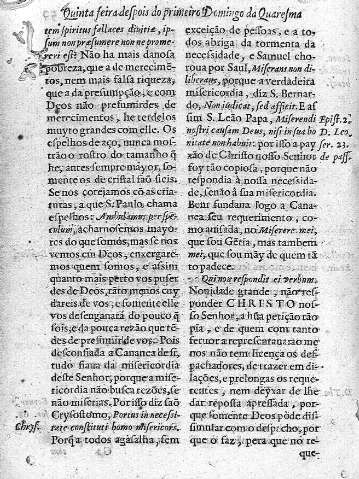 Quinta feira despois do primeiro Domingo da Quaresma
tem spiritus fallaces diuitiæ, ip-
sum non presumere non ne prome-
reri est? Não ha mais danosa
pobreza, que a de merecimẽ-
tos, nem mais falsa riqueza,
que a da presumpção, e com
Deos não presumirdes de
merecimentos, he terdelos
muyto grandes com elle. Os
espelhos de aço, nunca mos-
trão o rostro do tamanho q̃
he, antes sempre mayor, so-
mente os de cristal são fieis.
Se nos cotejamos cõ as cria-
turas, a que S. Paulo, chama
espelhos:
mayores
do que somos, mas se nos
vemos em Deos, enxergare-
mos quem somos, e assim
quanto mais perto vos puser
des de Deos, rãto menos cuy
dareis de vos, e somente elle
vos desenganará do pouco q̃
sois, e da pouca rezão que tẽ-
des de presumir de vos. Pois
desconfiada a Cananea de si,
tudo fiaua da misericordia
deste Senhor, porque a mise-
ricordia não busca rezões, se
não miserias. Por isso diz sãO
Crysostomo, Potius in necessi-
tate constituti homo misericors.
Chrys.
Porq̃ a todos agasalha, sem
exceição de pessoas, e a to-
dos abriga da tormenta da
necessidade, e Samuel cho-
roua por Saul, Miserans non di-
liberans, porque a verdadeira
misericordia, diz S. Bernar-
do, Non iudicat, sed afficit. E as
sim S. Leão Papa, Miserendi
nostri causam Deus, nisi in sua bo
nitate non habuit: por isso a pay
Epist. 2.
D. Leo.
ser. 23.
de pass.
xão de Christo nosso Senhor
foy tão copiosa, porque não
respondia à nossa necessida-
de, senão à sua misericordia.
Bem fundaua logo a Cana-
nea seu requerimento, co-
mo auisada, no Miserere mei,
que sou Gẽtia, mas tambem
mei, que sou mãy de quem tã
to padece.
Qui non respondit ei verbum.
Nouidade grande, não res-
ponder CHRISTO nos-
so Senhor, a hũa petição tão
pia, e de quem com tanto
feruor a representaua: so me
nos não tem licença os des-
pachadores, de trazer em di-
lações, e prolongas os reque-
rentes, nem deyxar de lhe
dar reposta apressada, por-
que somente Deos pòde dis-
simular com o despacho, por
que o faz, pera que no re-
que-